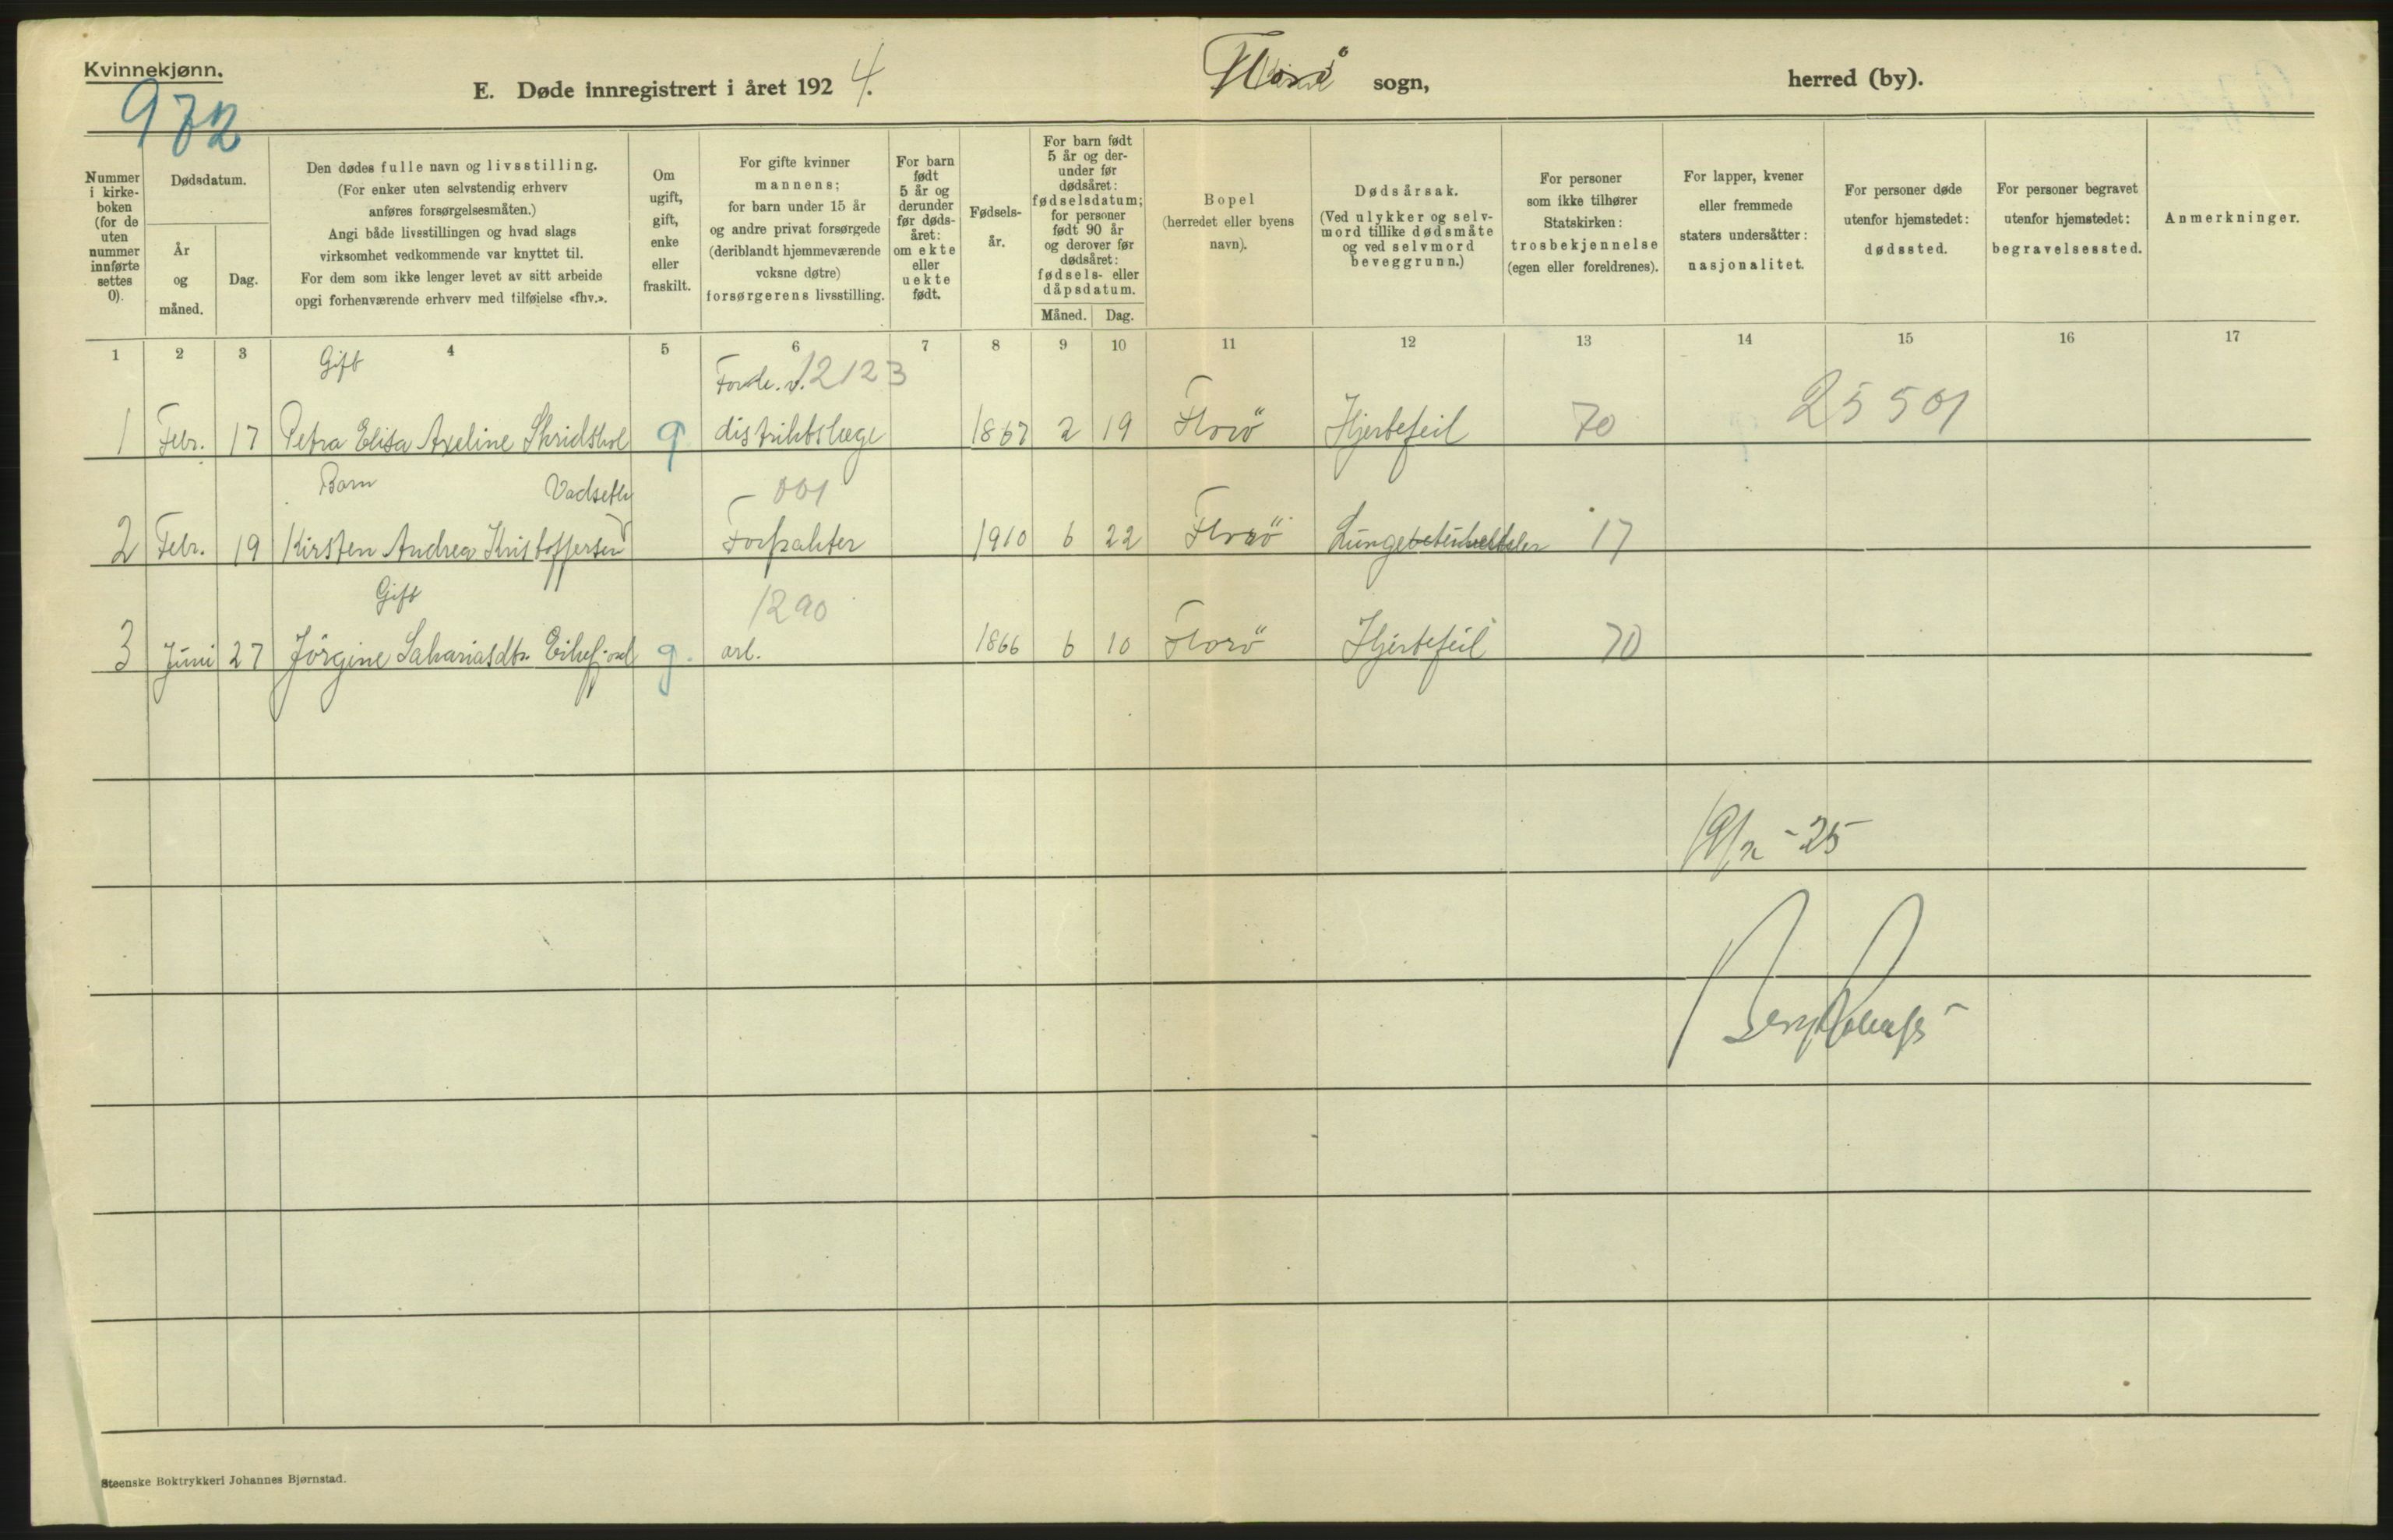 Kvinnekjønn.
972
E. Døde innregistrert i året 1924.
Florø sogn,
herred (by).
Nummer i kirkeboken (for de uten nummer innførte settes 0).
Dødsdatum.
År og måned.
Dag.
Den dødes fulle navn og livsstilling.
(For enker uten selvstendig erhverv
anføres forsørgelsesmåten.)
Angi både livsstillingen og hvad slags
virksomhet vedkommende var knyttet til.
For dem som ikke lenger levet av sitt arbeide
opgi forhenværende erhverv med tilføielse «fhv.».
Om ugift, gift, enke eller fraskilt.
For gifte kvinner
mannens;
for barn under 15 år
og andre privat forsørgede
(deriblandt hjemmeværende
voksne døtre)
forsørgerens livsstilling.
For barn født 5 år og derunder før dødsåret: om ekte eller uekte født.
Fødselsår.
For barn født 5 år og derunder før dødsåret: fødselsdatum; for personer født 90 år og derover før dødsåret: fødsels- eller dåpsdatum.
Måned.
Dag.
Bopel
(herredet eller byens
navn).
Dødsårsak.
(Ved ulykker og selv-
mord tillike dødsmåte
og ved selvmord
beveggrunn.)
For personer
som ikke tilhører
Statskirken:
trosbekjennelse
(egen eller foreldrenes).
For lapper, kvener
eller fremmede
staters undersåtter:
nasjonalitet.
For personer døde
utenfor hjemstedet:
dødssted.
For personer begravet
utenfor hjemstedet:
begravelsessted.
Anmerkninger.
1 2 3 4 5 6 7 8 9 10 11 12 13 14 15 16 17
Gift
12123
1 Febr. 17 Petra Elisa Axeline Skridshol g distriktslæge 1867 2 19 Florø Hjertefeil 70 25501
Barn Vadseth 001
2 Febr. 19 Kirsten Andrea Kristoffersen Forpakter 1910 6 22 Florø 17
Gift 1290
3 Juni 27 Jörgine Sakariasdtr. Eikefjord g. arb. 1866 6 10 Florø Hjertefeil 70
19/2-25
Steenske Boktrykkeri Johannes Bjørnstad.